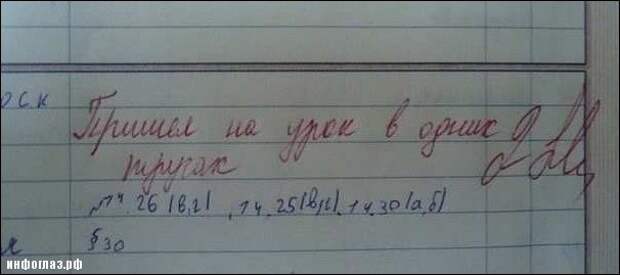 оск
Пришел на урок в одних
трусах
14.26(в,г), 14.25(в,г), 14.30(а,б)
§30
я
инфоглаз.рф